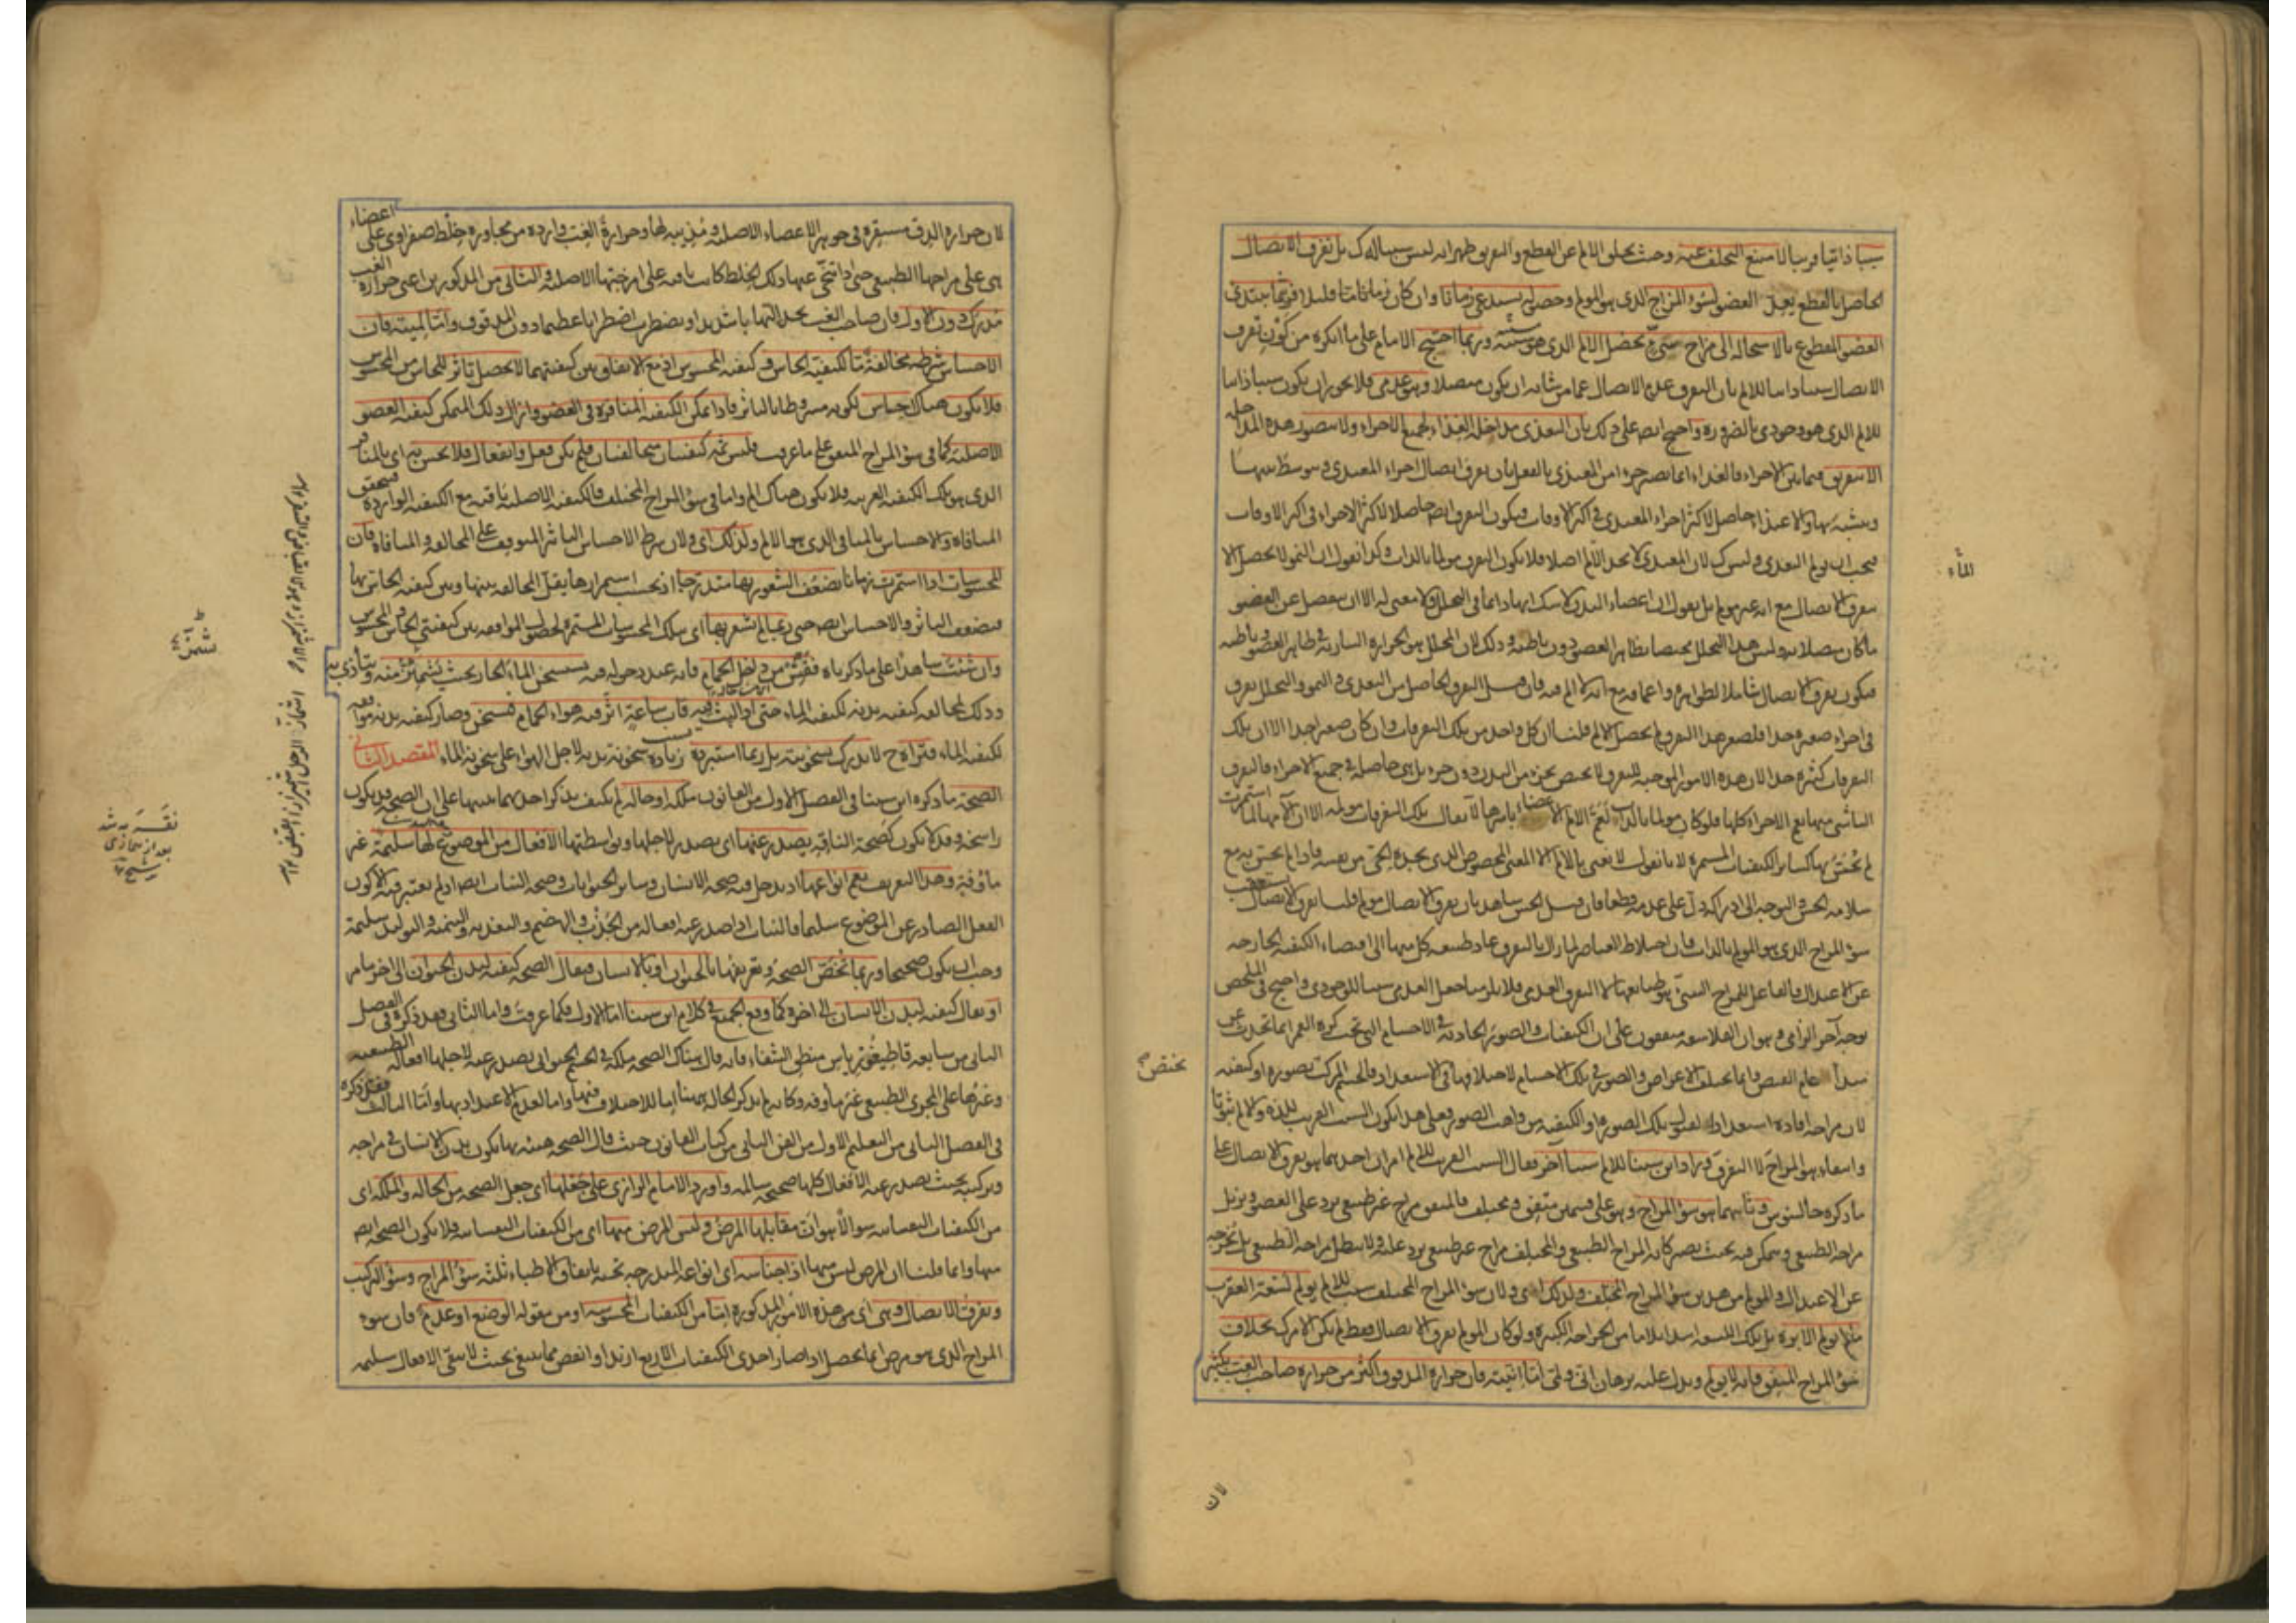 سببا ذاتيا قريبا لامتنع التخلف عنه وحيث تخلف الالم عن القطع والتفريق ظهر انه ليس سببا له ك بل تفرق الاتصال
الحاصل بالقطع يعد العضو لسوء المزاج الذى هو المولم وحصوله يستدعى زمانا وان كان زمانا قليلا فربما يبتدئ
العضو المقطوع بالاستحالة الى مزاج سيئ يحصل الالم الذى هو سببه وربما احتج الامام على ما انكره من كون تفرق
الاتصال سببا ذاتيا للالم بان التفرق عدم الاتصال عما من شانه ان يكون متصلا وهو عدمى فلا يجوز ان يكون سببا ذاتيا
للالم الذى هو وجودى بالضرورة واحتج ايضا على ذلك بان التغذى مداخلة الغذاء لجميع الاجزاء ولا يتصور هذه المداخلة
الا بتفريق فيما بين الاجزاء فالغذاء انما يصير جزءا من المغتذى بالفعل بان يفرق اتصال اجزاء المغتذى ويتوسط بينها
ويتشبه بها والاغتذاء حاصل لاكثر اجزاء المغتذى فى اكثر الاوقات فيكون التفرق ايضا حاصلا لاكثر الاجزاء فى اكثر الاوقات
فيجب ان يولم التغذى وليس ك لان المغتذى لا يجد الالم اصلا فلا يكون التفرق مولما بالذات وكذا نقول ان النمو لا يحصل الا
بتفرق الاتصال مع انه غير مولم بل نقول ان اعضاء البدن لا شك انها دائما فى التحلل ولا معنى له الا ان ينفصل عن العضو
ما كان متصلا به وليس هذا التحلل مختصا بظاهر العضو دون باطنه وذلك لان المحلل هو الحرارة السارية فى ظاهر العضو وباطنه
فيكون تفرق الاتصال شاملا لظواهره واعماقه مع انه لا الم فيه فان قيل التفرق الحاصل من التغذى والنمو والتحلل تفرق
فى اجزاء صغيرة جدا فلصغر هذا التفرق لم يحصل الالم قلنا ان كل واحد من تلك التفرقات وان كان صغيرا جدا الا ان تلك
التفرقات كثيرة جدا لان هذه الامور الموجبة للتفرق لا تختص بجزء من البدن دون جزء بل هى حاصلة فى جميع الاجزاء فالتفرق
الناشئ منها يعم الاجزاء كلها فلو كان مولما بالذات لعم الالم الاعضاء باسرها لا يقال تلك التفرقات مولمة الا ان الامها لما استمرت
لم يحس بها كسائر الكيفيات المستمرة لانا نقول لا نعنى بالالم الا المعنى المخصوص الذى يجده الحى من نفسه فاذا لم يحس به مع
سلامة الحس والتوجه الى ادراكه دل على عدمه قطعا فان قيل الحس شاهد بان تفرق الاتصال مولم قلنا تفرق الاتصال يستعقب
سوء المزاج الذى هو المولم بالذات فان اختلاط العناصر لما زال بالتفرق عاد طبيعة كل منها الى اقتضاء الكيفية الخارجة
عن الاعتدال فالفاعل للمزاج السيئ هو طبائعها لا التفرق العدمى فلا يلزم منا جعل العدمى سببا للوجودى واحتج فى الملخص
بوجه آخر الزامى وهو ان الفلاسفة متفقون على ان الكيفيات والصور الحادثة فى الاجسام التى تحت كرة القمر انما تحدث عن
مبدأ عام الفيض وانما تختلف الاعراض والصور فى تلك الاجسام لاختلافها فى الاستعداد فالجسم المركب بصورة او كيفية
لان مزاجه افاده استعدادا لقبول تلك الصورة او الكيفية من واهب الصور فعلى هذا يكون السبب القريب للذة والالم ثبوتا
وانتفاء هو المزاج لا التفرق وزاد ابن سينا للالم سببا آخر فقال السبب القريب للالم امران احدهما هو تفرق الاتصال على
ما ذكره جالينوس وثانيهما هو سوء المزاج وهو على قسمين متفق ومختلف فالمتفق مزاج غير طبيعى يرد على العضو ويزيل
مزاجه الطبيعى ويتمكن فيه بحيث يصير كانه المزاج الطبيعى والمختلف مزاج غير طبيعى يرد عليه ولا يبطل مزاجه الطبيعى بل يخرجه
عن الاعتدال والمولم من هذين سوء المزاج المختلف ولذلك اى ولان سوء المزاج المختلف سبب للالم يولم لسعة العقرب
ما لا يولم الابرة بل تلك اللسعة اشد ايلاما من الجراحة الكبيرة ولو كان المولم تفرق الاتصال فقط لم يكن الامر ك بخلاف
سوء المزاج المتفق فانه لا يولم ويدل عليه برهان انى ولمى اما انيته فان حرارة المدقوق اكثر من حرارة صاحب الغب بكثير
الماء
يختص
لان
لان حرارة الدق مستقرة فى جوهر الاعضاء الاصلية ومذيبة لها وحرارة الغب واردة من مجاورة خلط صفراوى على اعضاء
هى على مزاجها الطبيعى حتى اذا تنحى عنها ذلك الخلط كانت باقية على امزجتها الاصلية والثانى من المذكورين اعنى حرارة الغب
مدرك دون الاول فان صاحب الغب يجد التهابا شديدا ويضطرب اضطرابا عظيما دون المدقوق واما لميته فان
الاحساس شرطه مخالفة ما لكيفية الحاس وكيفية المحسوس اذ مع الاتفاق بين كيفيتهما لا يحصل تاثر للحاس من المحسوس
فلا يكون هناك احساس لكونه مشروطا بالتاثر فاذا تمكن الكيفية المنافرة فى العضو وازال ذلك المتمكن كيفية العضو
الاصلية كما فى سوء المزاج المتفق على ما عرفت فليس ثمه كيفيتان متخالفتان فلم يكن فعل وانفعال فلا يحس به اى بالمنافر
الذى هو تلك الكيفية الغريبة فلا يكون هناك الم واما فى سوء المزاج المختلف فالكيفية الاصلية باقية مع الكيفية الواردة فيتحقق
المنافاة والاحساس بالمنافى الذى هو الالم ولذلك اى ولان شرط الاحساس التاثر المتوقف على المخالفة والمنافاة فان
المحسوسات اذا استمرت زمانا يضعف الشعور بها متدرجا اذ بحسب استمرارها يقل المخالفة بينها وبين كيفية الحاس بها
فيضعف التاثر والاحساس ايضا حتى ربما لم يشعر بها اى بتلك المحسوسات المستمرة لحصول الموافقة بين كيفيتى الحاس والمحسوس
وان شئت شاهدا على ما ذكرناه فقس من دخل الحمام فانه عند دخوله فيه يستسخن الماء الحار بحيث يشمئز منه ويتأذى به
وذلك لمخالفة كيفية بدنه لكيفية الماء حتى اذا لبث فيه ساعة اثر فيه هواء الحمام فتسخن وصار كيفية بدنه موافقة
لكيفية الماء فتراه ح لا يدرك سخونته بل ربما استبرده بسبب زيادة سخونة بدنه لاجل الهواء على سخونة الماء المقصد الثانى
الصحة ما ذكره ابن سينا فى الفصل الاول من القانون ملكة او حالة لم يكتف بذكر احدهما تنبيها على ان الصحة قد يكون
راسخة وقد لا يكون كصحة الناقه يصدر عنها اى يصدر لاجلها وبواسطتها الافعال من الموضوع لها سليمة غير
ماؤفة وهذا التعريف يعم انواعها اذ يدخل فيه صحة الانسان وسائر الحيوانات وصحة النبات ايضا اذ لم يعتبر فيه الا كون
الفعل الصادر عن الموضوع سليما فالنبات اذا صدر عنه افعاله من الجذب والهضم والتغذية والتنمية والتوليد سليمة
وجب ان يكون صحيحا وربما تخص الصحة وتعريفها بالحيوان او بالانسان فيقال الصحة كيفية لبدن الحيوان الى آخر ما مر
او يقال كيفية لبدن الانسان الى اخره كما وقع الجميع فى كلام ابن سينا اما الاول فكما عرفت واما الثانى فقد ذكره فى الفصل
الثانى من سابعة قاطيغورياس منطق الشفاء فانه قال هناك الصحة ملكة فى الجسم الحيوانى يصدر عنه لاجلها افعاله الطبيعية
وغيرها على المجرى الطبيعى غير ماوفة وكانه لم يذكر الحالة ههنا اما للاختلاف فيها واما لعدم الاعتداد بها واما الثالث فقد ذكره
فى الفصل الثانى من التعليم الاول من الفن الثانى من كتاب القانون حيث قال الصحة هيئة بها يكون بدن الانسان فى مزاجه
وتركيبه بحيث يصدر عنه الافعال كلها صحيحة سالمة واورد الامام الرازى على جعلها اى جعل الصحة من الحالة والملكة اى
من الكيفيات النفسانية سوالا هو ان مقابلها المرض وليس المرض منها اى من الكيفيات النفسانية فلا يكون الصحة ايضا
منها وانما قلنا ان المرض ليس منها اذ اجناسه اى انواعه المندرجة تحته باتفاق الاطباء ثلثة سوء المزاج وسوء التركيب
وتفرق الاتصال وهى اى هذه الامور المذكورة اما من الكيفيات المحسوسة او من مقولة الوضع او عدم فان سوء
المزاج الذى هو مرض انما يحصل اذا صار احدى الكيفيات الاربع ازيد او انقص مما ينبغى بحيث لا يبقى الافعال سليمة